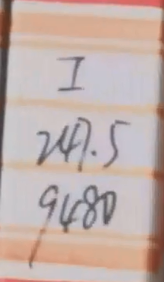 I
247.5
9480